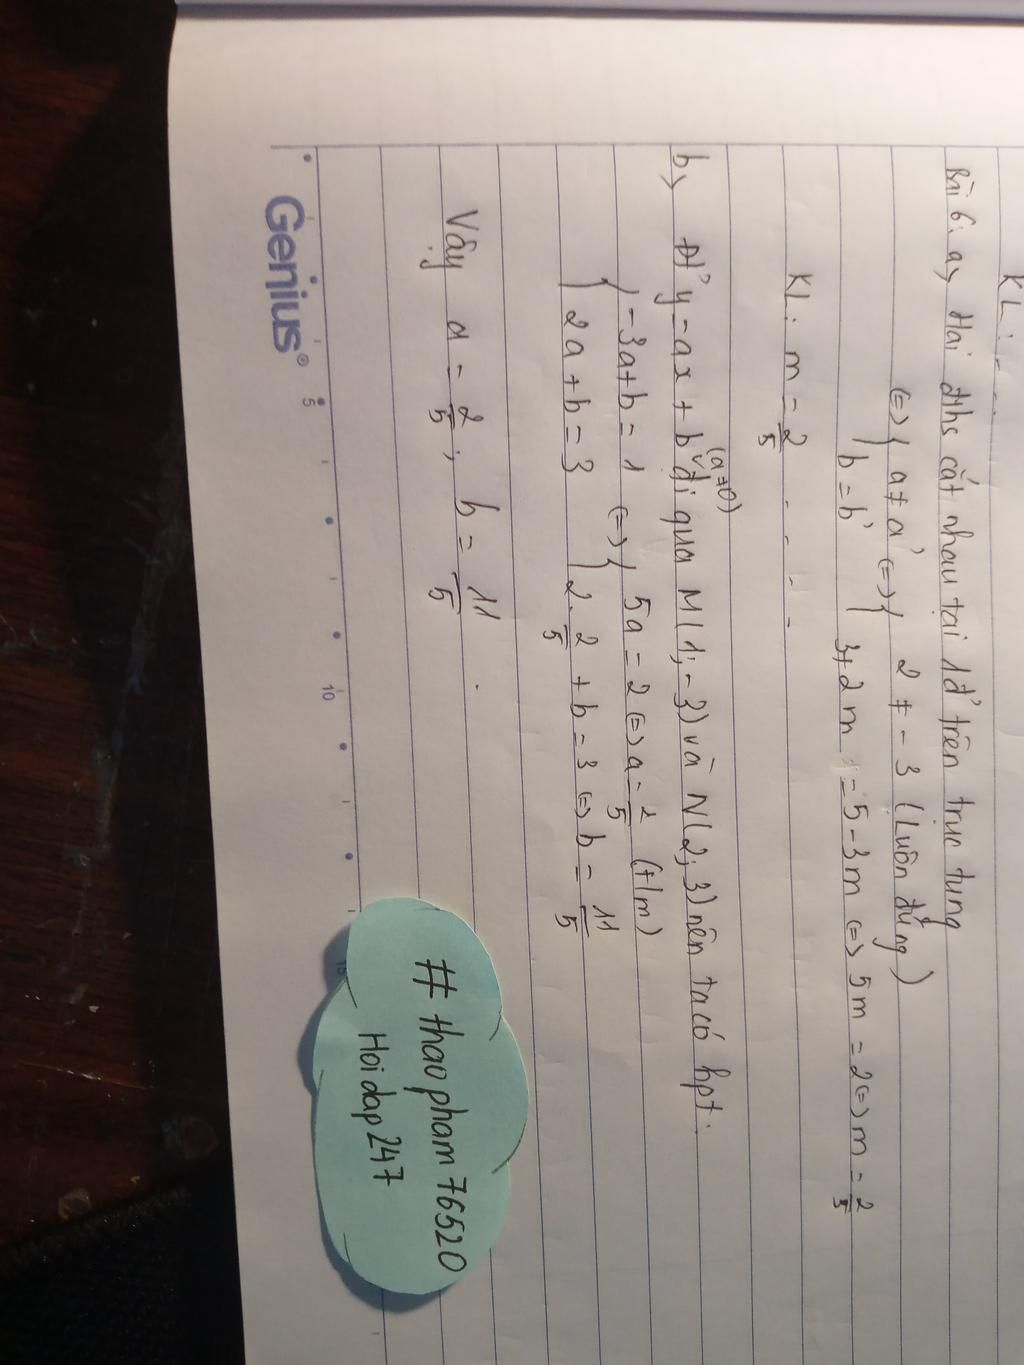 KL: - - - -
Bài 6: a, Hai đths cắt nhau tại 1 đ' trên trục tung
(=) { a ≠ a' (=) { 2 ≠ - 3 (Luôn đúng)
b = b' 3+2m = 5-3m (=) 5m = 2 (=) m = 2/5
KL: m = 2/5 - - - -
b, Đt' y = ax + b (a≠0) đi qua M(1; -3) và N(2; 3) nên ta có hpt:
{ -3a+b = 1 (=) { 5a = 2 (=) a = 2/5 (t/m)
2a+b = 3 2. 2/5 + b = 3 (=) b = 11/5
Vậy a = 2/5 ; b = 11/5 .
# thaopham76520
Hoidap247
Genius®
5
10
15